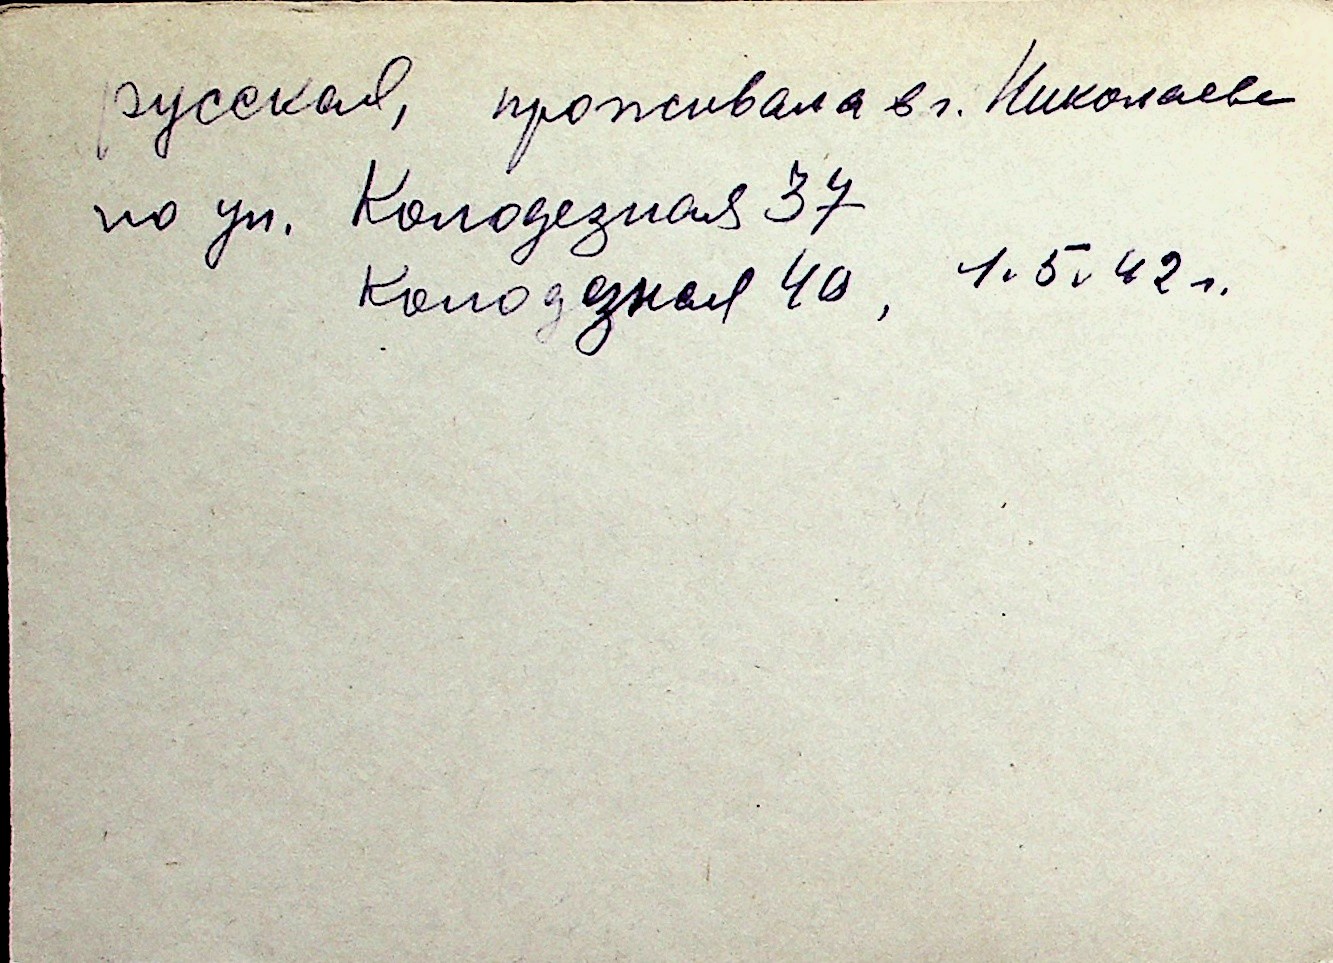 русская, проживала в г. Николаеве
по ул. Колодезная 37
Колодезная 40, 1.5.42 г.